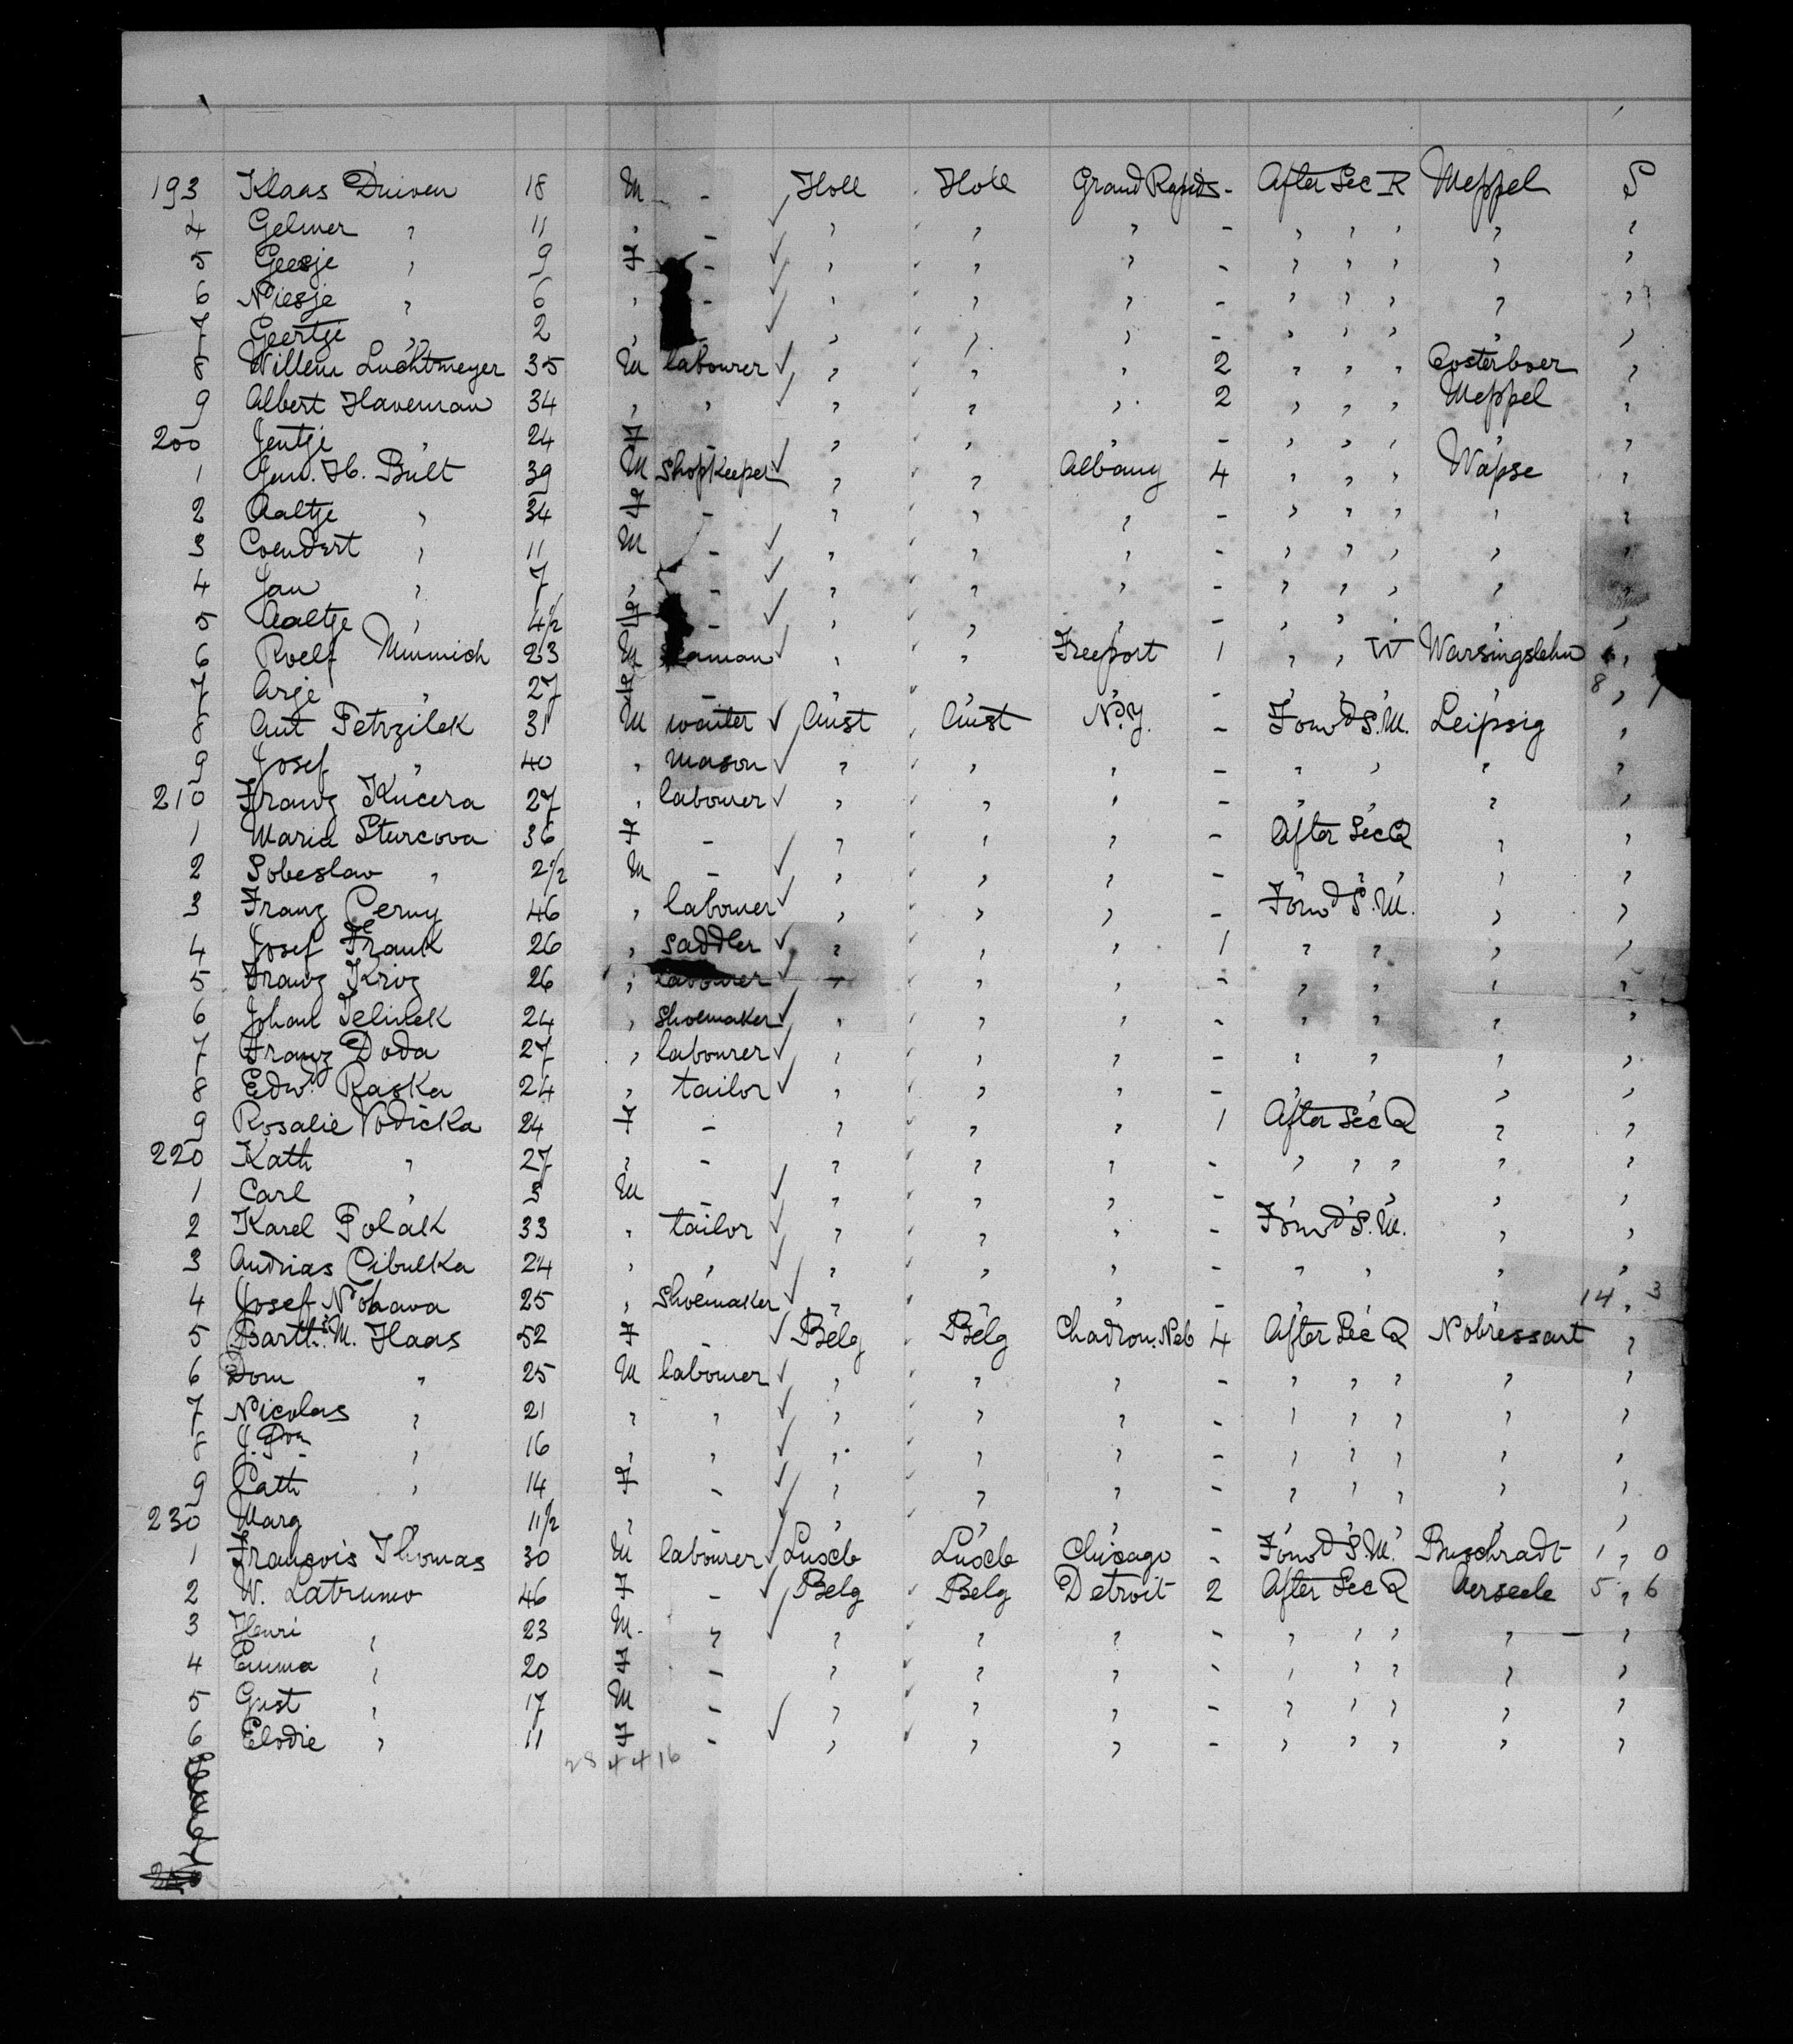 193 Klaas Duiven 18 M - Holl Holl Grand Rapids - After Sec R Meppel S
4 Gelmer " 11 " - " " " - " " " " "
5 Geesje " 9 F - " " " - " " " " "
6 Niesje " 6 " - " " " - " " " " "
7 Geertje " 2 " " " " - " " " " "
8 Willem Luchtmeyer 35 M labourer " " " 2 " " " Oosterboer "
9 Albert Haveman 34 " " " " " 2 " " " Meppel "
200 Jentje " 24 F - " " " - " " " "
1 Jan. H. Bult 39 M Shopkeeper " " Albany 4 " " " Wapse "
2 Aaltje " 34 F - " " " - " " " " "
3 Coendert " 11 M - " " " - " " " " "
4 Jan " 7 " - " " " - " " " " "
5 Aaltje " 4/2 F - " " " - " " " " "
6 Roelf Minmich 23 M " " Freeport 1 " " W "
7 Arje " 27 F - " " " - " " " " 8 "
8 Ant Petrzilek 31 M waiter Aust Aust N.Y. - Forw d S.M. Leipsig "
9 Josef " 40 " mason " " " - " " " "
210 Franz Kucera 27 " labourer " " " - " " " "
1 Maria Sturcova 36 F - " " " - After Sec Q " "
2 Sobeslav " 2/2 M - " " " - " " " " "
3 Franz Cerny 46 " labourer " " " - Forw d S.M. " "
4 Josef Frank 26 " saddler " " " 1 " " " "
5 Franz Kriz 26 " labourer " " " - " " " "
6 Johann Jelinek 24 " shoemaker " " " - " " " "
7 Franz Doda 27 " labourer " " " - " " " "
8 Edw. Raska 24 " tailor " " " - " " " "
9 Rosalie Vodicka 24 F - " " " 1 After Sec Q " "
220 Kath " 27 " - " " " - " " " " "
1 Carl " 3 M - " " " - " " " " "
2 Karel Polak 33 " tailor " " " - Forw d S.M. " "
3 Andrias Cibulka 24 " " " " " - " " " "
4 Josef 25 " Shoemaker " " " - " " " 14 " 3
5 Barth. M. Haas 52 F - Belg Belg Chadron. Neb 4 After Sec Q Nobressart "
6 Dom " 25 M labourer " " " - " " " " "
7 Nicolas " 21 " " " " " - " " " " "
8 " 16 " " " " " - " " " " "
9 Cath " 14 F - " " " - " " " " "
230 Marg " 11/2 " - " " " - " " " " "
1 François Thomas 30 M labourer Luxeb Luxeb Chicago - Forw d S.M. Buschradt 1 " 0
2 W. 46 F - Belg Belg Detroit 2 After Sec Q Aerseele 5 " 6
3 Henri " 23 M. " " " " - " " " " - "
4 Emma " 20 F - " " " - " " " " "
5 Gust " 17 M - " " " - " " " " "
6 Elodie " 11 F - " " " - " " " " "
28 4 4 16